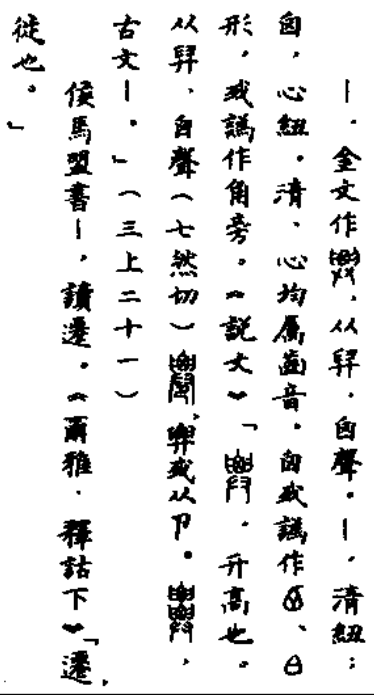 ｜，金文作，从舁，囟聲。｜，清紐；
囟，心紐。清、心均屬齒音。囟或譌作、
形，或譌作角旁。《説文》「，升高也。
从舁、囟聲（七然切），或从卩。，
古文｜。」（三上二十一）
侯馬盟書｜，讀遷。《爾雅·釋詁下》「遷，
徙也。」